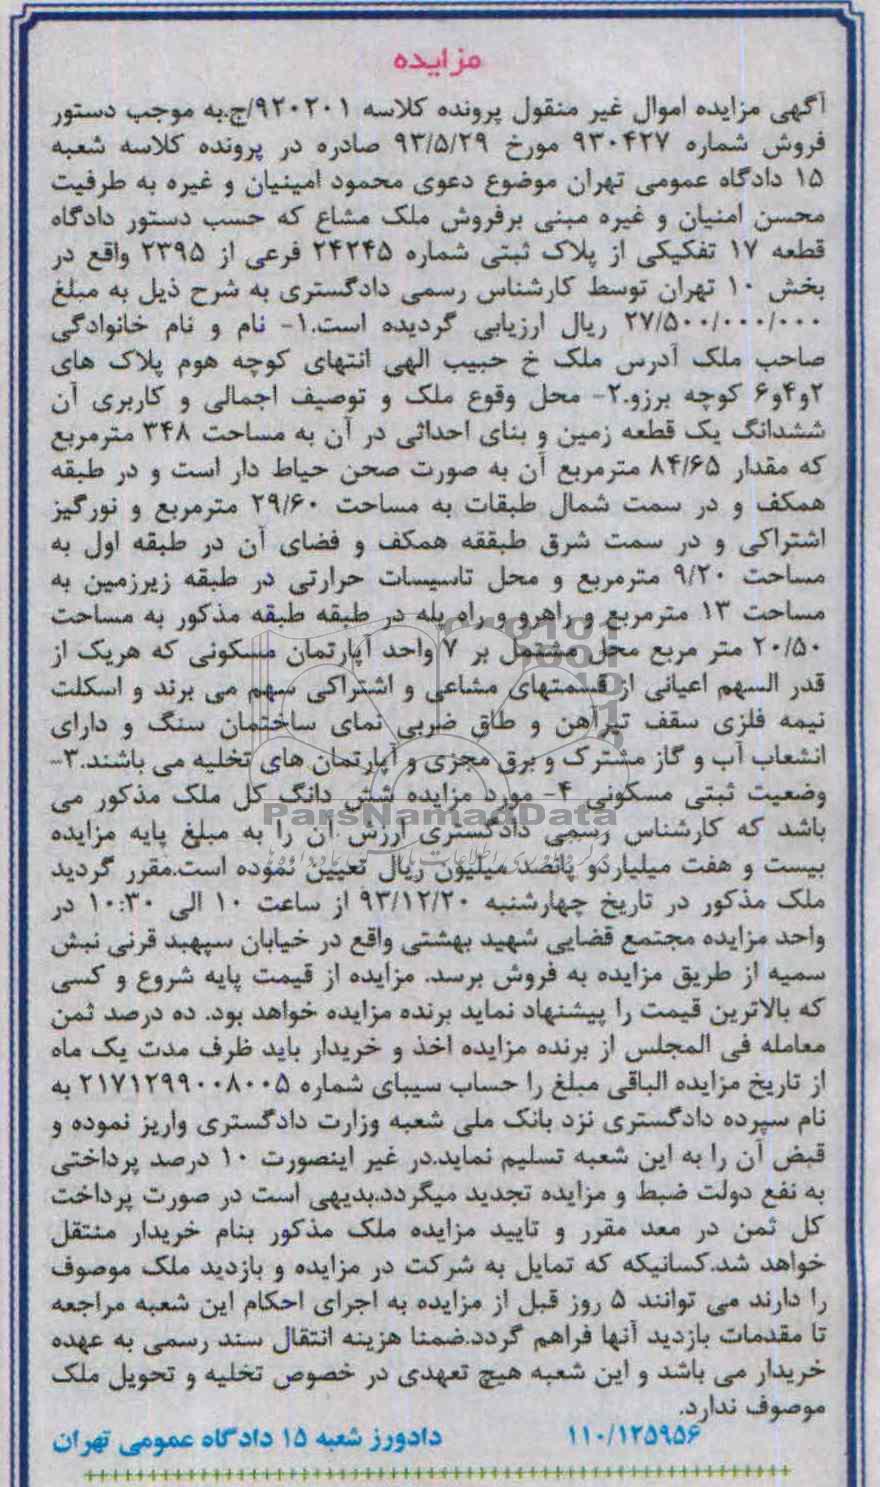 مزایده
آگهی مزایده اموال غیر منقول پرونده کلاسه ۹۲۰۲۰۱/ج.به موجب دستور
فروش شماره ۹۳۰۴۲۷ مورخ ۹۳/۵/۲۹ صادره در پرونده کلاسه شعبه
۱۵ دادگاه عمومی تهران موضوع دعوی محمود امینیان و غیره به طرفیت
محسن امنیان و غیره مبنی برفروش ملک مشاع که حسب دستور دادگاه
قطعه ۱۷ تفکیکی از پلاک ثبتی شماره ۲۴۲۴۵ فرعی از ۲۳۹۵ واقع در
بخش ۱۰ تهران توسط کارشناس رسمی دادگستری به شرح ذیل به مبلغ
۲۷/۵۰۰/۰۰۰/۰۰۰ ریال ارزیابی گردیده است.۱- نام و نام خانوادگی
صاحب ملک آدرس ملک خ حبیب الهی انتهای کوچه هوم پلاک های
۲و۴و۶ کوچه برزو.۲- محل وقوع ملک و توصیف اجمالی و کاربری آن
ششدانگ یک قطعه زمین و بنای احداثی در آن به مساحت ۳۴۸ مترمربع
که مقدار ۸۴/۶۵ مترمربع آن به صورت صحن حیاط دار است و در طبقه
همکف و در سمت شمال طبقات به مساحت ۲۹/۶۰ مترمربع و نورگیز
اشتراکی و در سمت شرق طبققه همکف و فضای آن در طبقه اول به
مساحت ۹/۲۰ مترمربع و محل تاسیسات حرارتی در طبقه زیرزمین به
مساحت ۱۳ مترمربع و راهرو و راه پله در طبقه طبقه مذکور به مساحت
۲۰/۵۰ متر مربع محل مشتمل بر ۷ واحد آپارتمان مسکونی که هریک از
قدر السهم اعیانی از قسمتهای مشاعی و اشتراکی سهم می برند و اسکلت
نیمه فلزی سقف تیرآهن و طاق ضربی نمای ساختمان سنگ و دارای
انشعاب آب و گاز مشترک و برق مجزی و آپارتمان های تخلیه می باشند.۳-
وضعیت ثبتی مسکونی ۴- مورد مزایده شش دانگ کل ملک مذکور می
ParsNamadData
باشد که کارشناس رسمی دادگستری ارزش آن را به مبلغ پایه مزایده
بیست و هفت میلیاردو پانصد میلیون ریال تعیین نموده است.مقرر گردید
ملک مذکور در تاریخ چهارشنبه ۹۳/۱۲/۲۰ از ساعت ۱۰ الی ۱۰:۳۰ در
واحد مزایده مجتمع قضایی شهید بهشتی واقع در خیابان سپهبد قرنی نبش
سمیه از طریق مزایده به فروش برسد. مزایده از قیمت پایه شروع و کسی
که بالاترین قیمت را پیشنهاد نماید برنده مزایده خواهد بود. ده درصد ثمن
معامله فی المجلس از برنده مزایده اخذ و خریدار باید ظرف مدت یک ماه
از تاریخ مزایده الباقی مبلغ را حساب سیبای شماره ۲۱۷۱۲۹۹۰۰۸۰۰۵ به
نام سپرده دادگستری نزد بانک ملی شعبه وزارت دادگستری واریز نموده و
قبض آن را به این شعبه تسلیم نماید.در غیر اینصورت ۱۰ درصد پرداختی
به نفع دولت ضبط و مزایده تجدید میگردد.بدیهی است در صورت پرداخت
کل ثمن در معد مقرر و تایید مزایده ملک مذکور بنام خریدار منتقل
خواهد شد.کسانیکه که تمایل به شرکت در مزایده و بازدید ملک موصوف
را دارند می توانند ۵ روز قبل از مزایده به اجرای احکام این شعبه مراجعه
تا مقدمات بازدید آنها فراهم گردد.ضمنا هزینه انتقال سند رسمی به عهده
خریدار می باشد و این شعبه هیچ تعهدی در خصوص تخلیه و تحویل ملک
موصوف ندارد.
۱۱۰/۱۲۵۹۵۶ دادورز شعبه ۱۵ دادگاه عمومی تهران